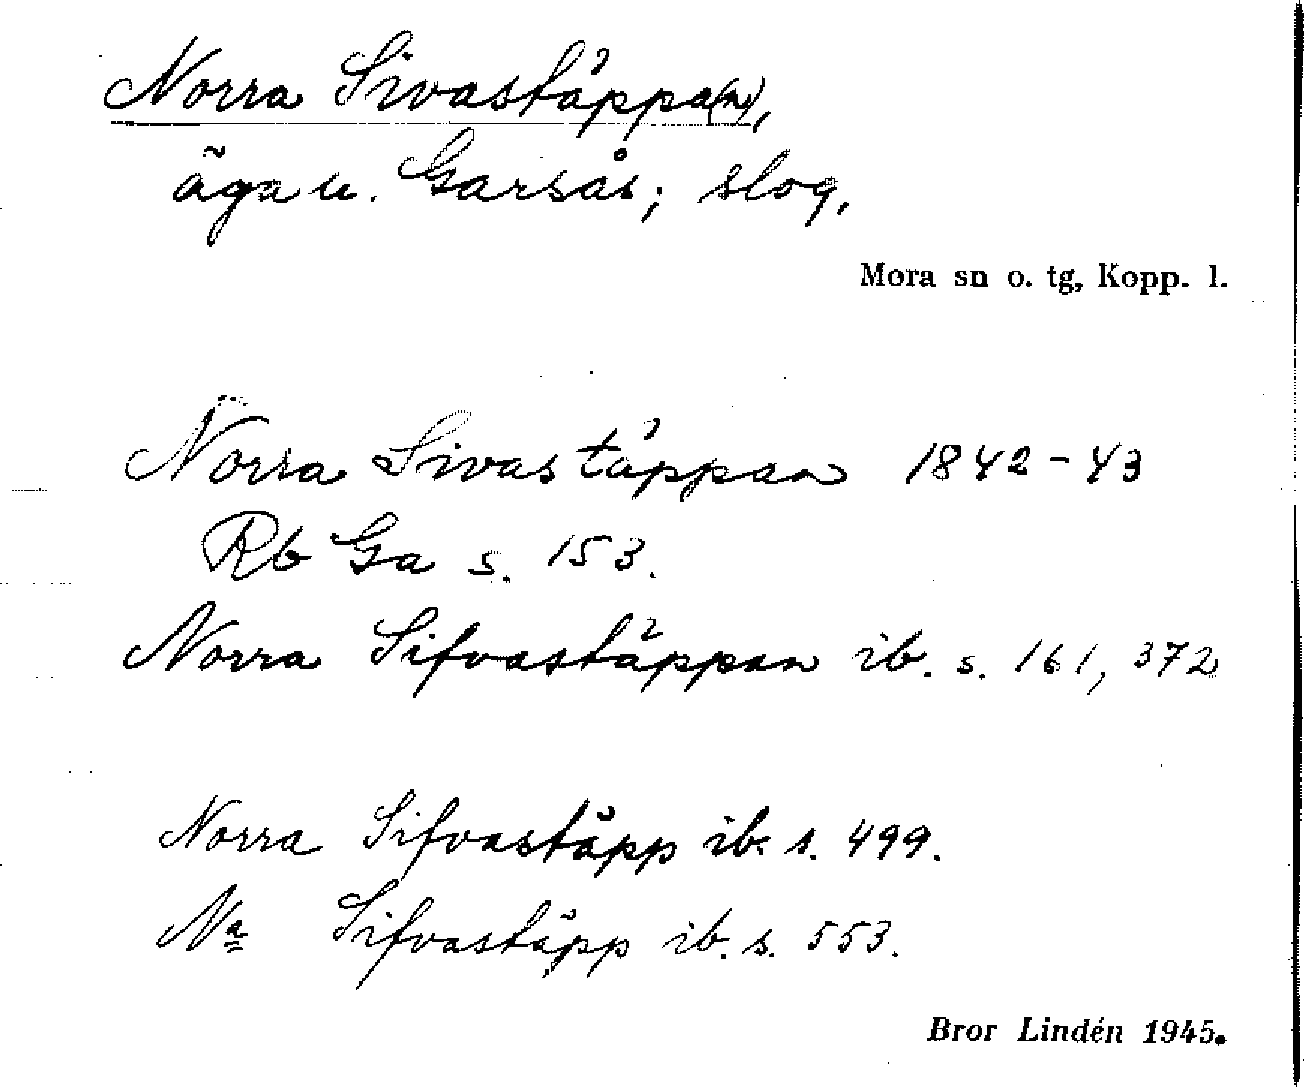 Norra Sivastäppa(n),
äga u. Garsås; slog,
Mora sn o. tg, Kopp. l.
Norra Sivas täppan 1842-43
Rb Ga s. 153.
Norra Sifvastäppan ib. s. 161, 372
Norra Sifvastäpp ib. s. 499.
Na Sifvastäpp ib. s. 553.
Bror Lindén 1945.